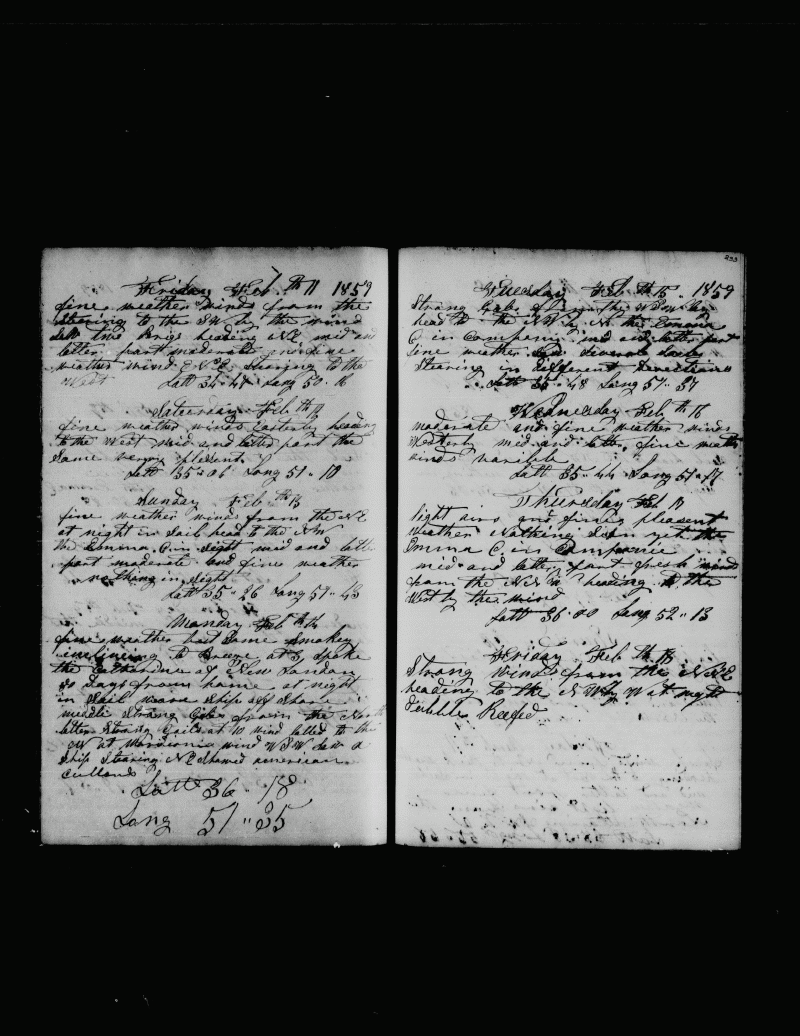 Friday Feb th 11 1859
fine weather winds from the
Stearing to the SW by the wind
Saw two Brigs heading NE mid and
latter part moderate and fine
weather wind ENE Stearing to the
West Latt 34 " 48 Long 50 " 16
Saturday Feb th 12
fine weather winds Easterly heading
to the West mid and latter part the
Same very plesent
Latt 35 " 06 Long 51 " 10
Sunday Feb th 13
fine weather winds from the NE
at night in Sail head to the NW
the Emma C. in Sight mid and latter
part moderate and fine weather
nothing in Sight
Latt 35 " 26 Long 51 " 43
Monday Feb th 14
fine weather but Some Smokey
inclining to Breeze at 3 spoke
the Catharine of New London
30 days from home at night
in Sail wore Ship off Shore
middle Strong Gale from the North
latter Strong Gails at 10 wind halled to the
at Merdionia wind WSW Saw a
Ship Stearing NE Showed american
Cullours
Latt 36 " 18
Long 51 " 35
233
Tuesday Feb th 15 1859
Strong Gale from the WSW by
head to the NW by N the Emma
C. in Company mid and latter part
fine weather Saw Several Sails
Stearing in different directions
Latt 35 " 48 Long 51 " 37
Wednesday Feb th 16
moderate and fine weather winds
Westerly mid and latter fine weather
winds varible
Latt 35 " 44 Long 51 "
Thursday Feb 17
light airs and fine pleasent
weather Nothing Seen yet the
Emma C. in Companie
mid and latter part fresh winds
from the NNW heading to the
West by the wind
Latt 36 " 00 Long 52 " 13
Friday Feb th 18
Strong winds from the NNE
heading to the NW by W at night
Dubble Reefed